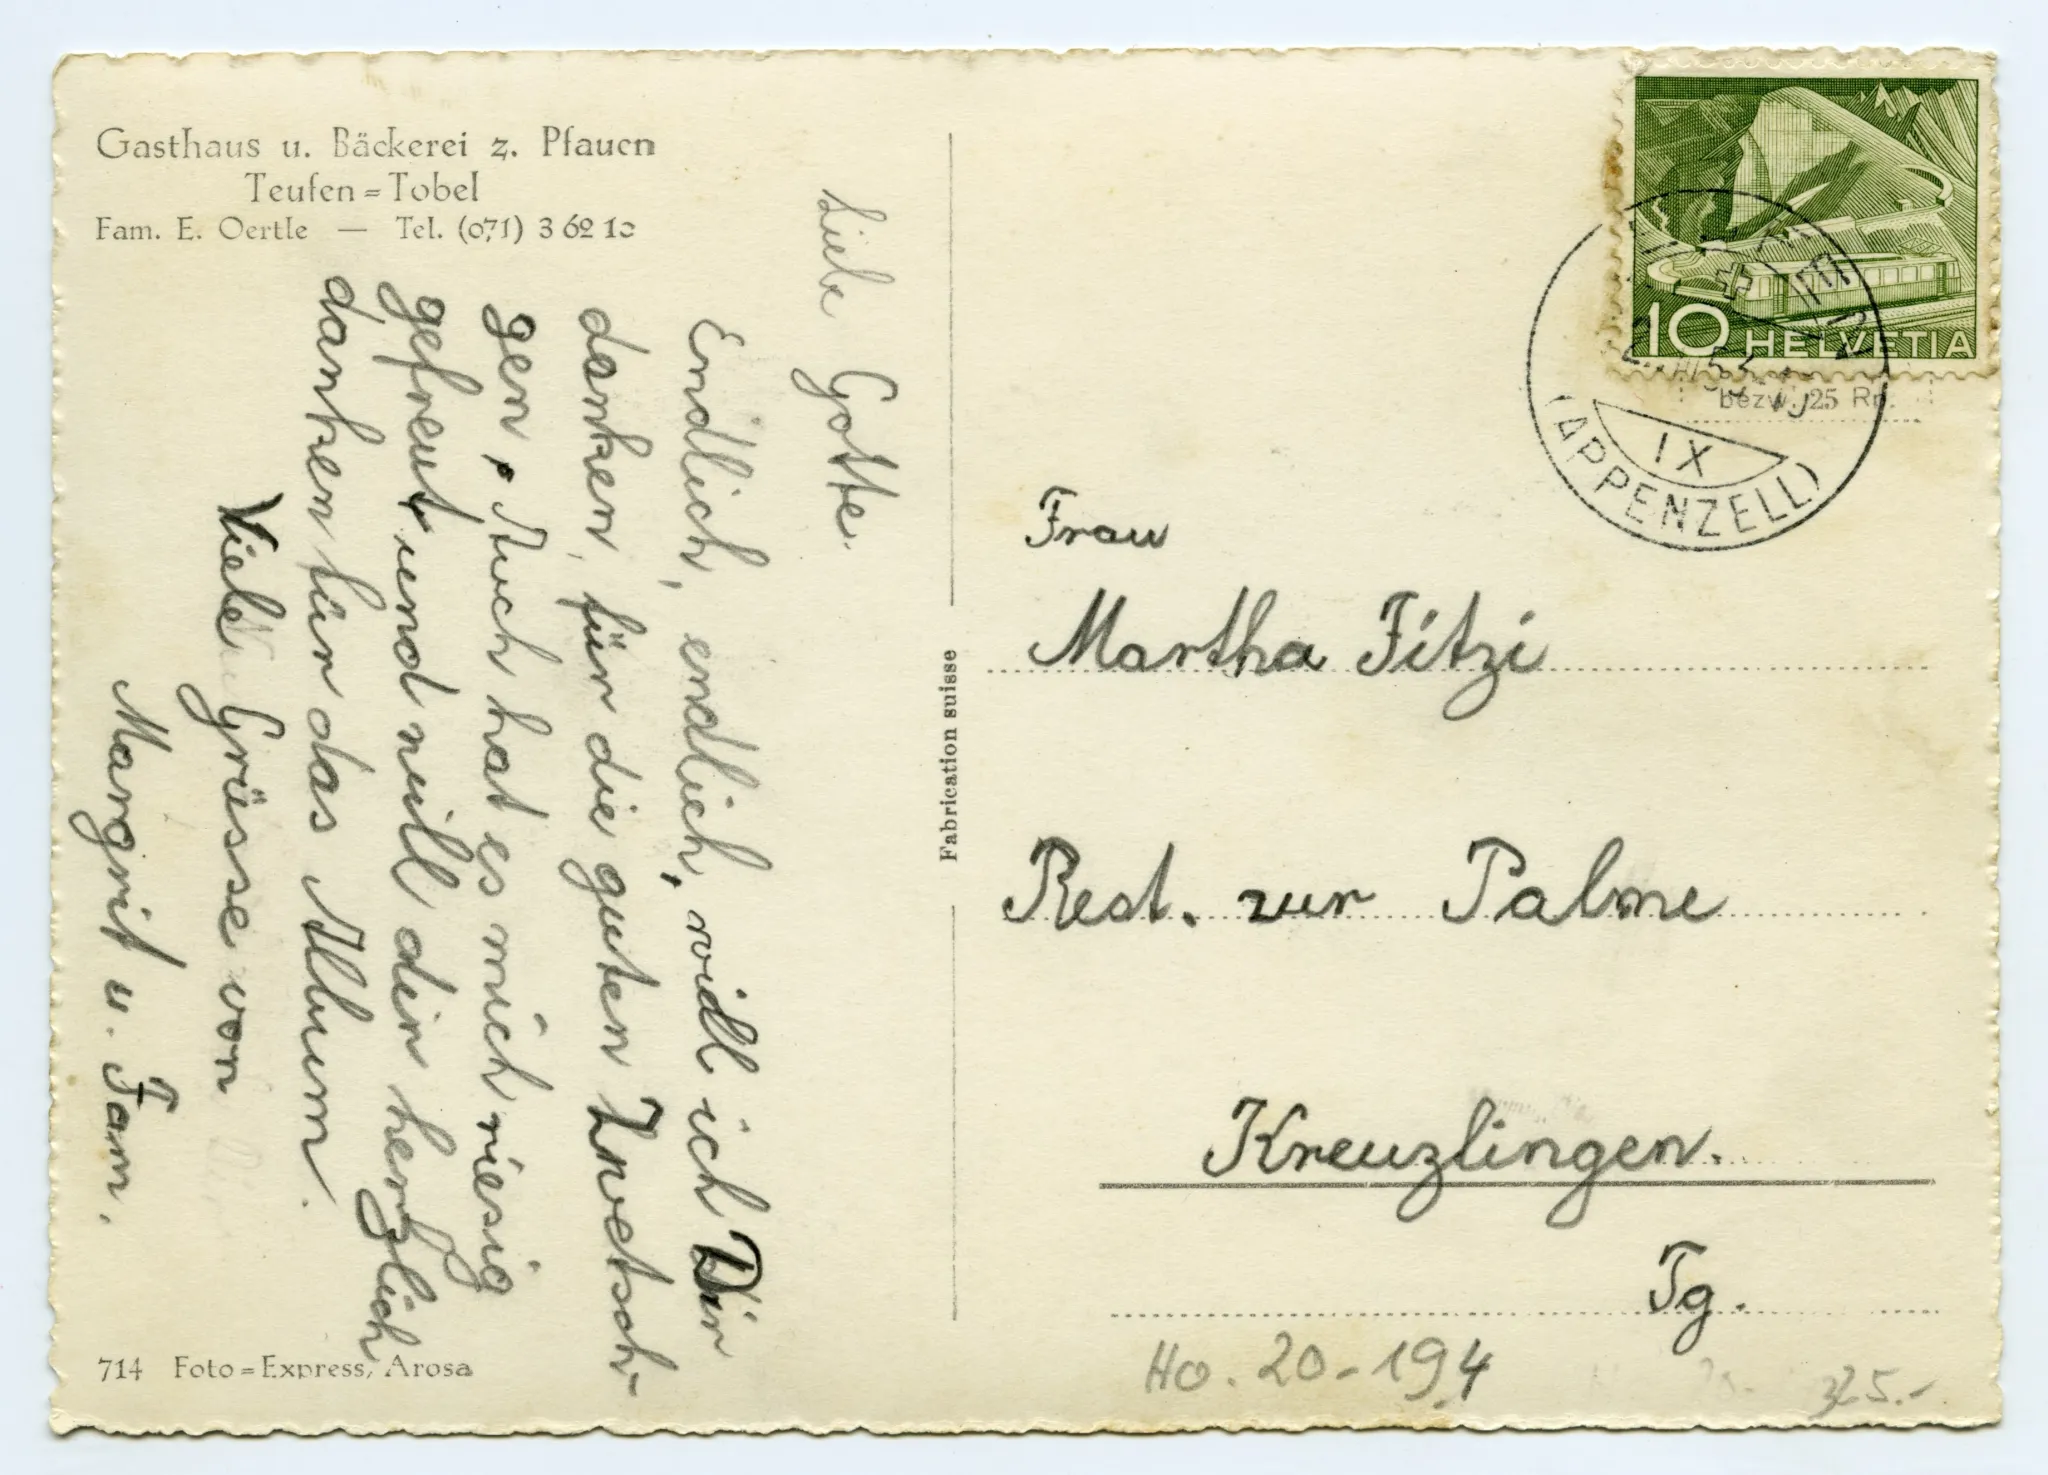 Gasthaus u. Bäckerei z. Pfauen
Teufen=Tobel
Fam. E. Oertle — Tel. (071) 3 62 10
Liebe Gotte.
Endlich, endlich, will ich Dir
danken, für die guten Zwetsch-
gen, Auch hat es mich riesig
gefreut und will dir herzlich
danken für das Album.
Viele Grüsse von
Margrit u. Fam.
714 Foto=Express, Arosa
Fabrication suisse
10 HELVETIA
bezw. 25 Rp.
IX
(APPENZELL)
Frau
Martha Fitzi
Rest. zur Palme
Kreuzlingen.
Tg.
Ho. 20-194
25.-